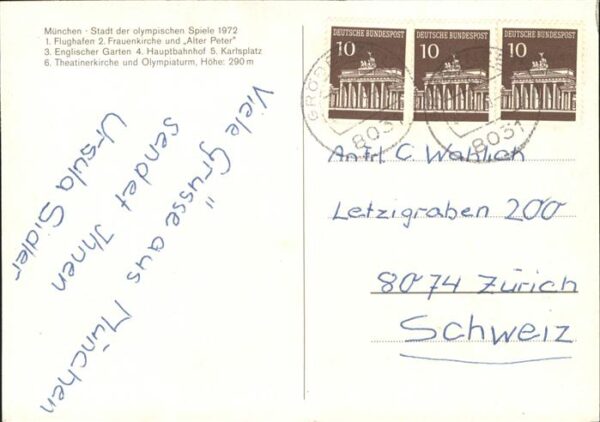 München · Stadt der olympischen Spiele 1972
1. Flughafen 2. Frauenkirche und „Alter Peter"
3. Englischer Garten 4. Hauptbahnhof 5. Karlsplatz
6. Theatinerkirche und Olympiaturm, Höhe: 290 m
Viele Grüsse aus München
sendet Ihnen
Ursula Sidler
DEUTSCHE BUNDESPOST
10
DEUTSCHE BUNDESPOST
10
DEUTSCHE BUNDESPOST
10
8031
8031
C. Wahlich
Letzigraben 200
8074 Zürich
Schweiz